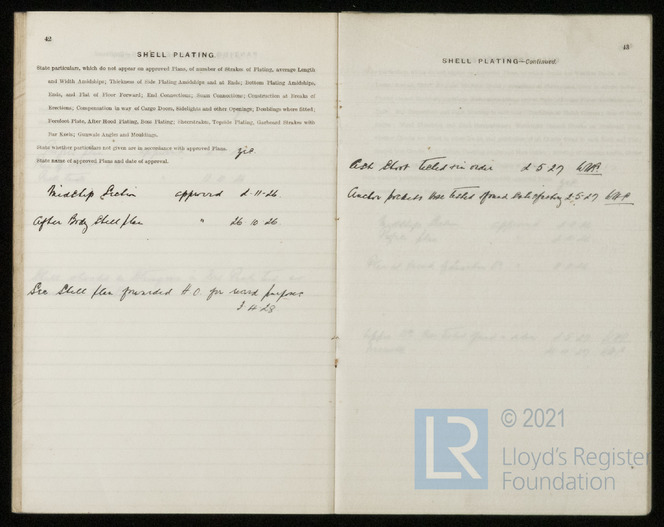 42
SHELL PLATING.
State particulars, which do not appear on approved Plans, of number of Strakes of Plating, average Length
and Width Amidships; Thickness of Side Plating Amidships and at Ends; Bottom Plating Amidships,
Ends, and Flat of Floor Forward; End Connections; Seam Connections; Construction at Breaks of
Erections; Compensation in way of Cargo Doors, Sidelights and other Openings; Doublings where fitted;
Furnace Plate, After Hood Plating, Boss Plating; Sheerstrake, Topside Plating, Garboard Strakes with
Bar Keels; Gunwale Angles and Mouldings.
State whether particulars not given are in accordance with approved Plans. yes
State name of approved Plans and date of approval.
Midship Section approved 2.11.26.
After Body Shell plan " 26.10.26.
See Shell plan forwarded H.O. for record purposes
3.4.28
43
SHELL PLATING—Continued.
Ash Shoot tested in order 2.5.27
Anchor pockets hose tested & found satisfactory 2.5.27
LR
© 2021
Lloyd's Register
Foundation